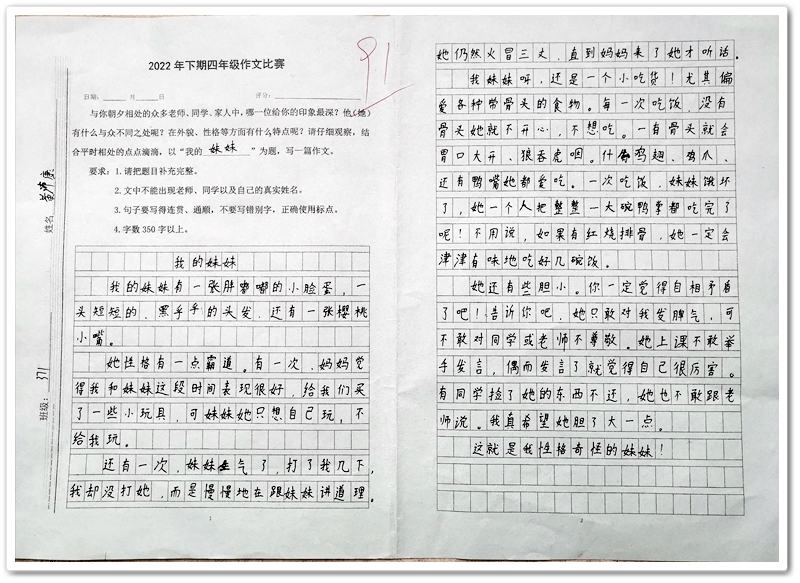 2022年下期四年级作文比赛
91
日期：____月____日 评分：
与你朝夕相处的众多老师、同学、家人中，哪一位给你的印象最深？他（她）
有什么与众不同之处呢？在外貌、性格等方面有什么特点呢？请仔细观察，结
合平时相处的点点滴滴，以“我的 妹妹 ”为题，写一篇作文。
要求：1.请把题目补充完整。
2.文中不能出现老师、同学以及自己的真实姓名。
3.句子要写得连贯、通顺，不要写错别字，正确使用标点。
4.字数350字以上。
姓名
班级：371
我的妹妹
我的妹妹有一张胖嘟嘟的小脸蛋，一
头短短的、黑乎乎的头发，还有一张樱桃
小嘴。
她性格有一点霸道。有一次，妈妈觉
得我和妹妹这段时间表现很好，给我们买
了一些小玩具，可妹妹她只想自己玩，不
给我玩。
还有一次，妹妹生气了，打了我几下，
我却没打她，而是慢慢地在跟妹妹讲道理。
1
她仍然火冒三丈，直到妈妈来了她才听话。
我妹妹呀，还是一个小吃货！尤其偏
爱各种带骨头的食物。每一次吃饭，没有
骨头她就不开心，不想吃。一有骨头就会
胃口大开、狼吞虎咽。什么鸡翅、鸡爪、
还有鸭嘴她都爱吃。一次吃饭，妹妹饿坏
了，她一个人把整整一大碗鸭掌都吃完了
呢！不用说，如果有红烧排骨，她一定会
津津有味地吃好几碗饭。
她还有些胆小。你一定觉得自相矛盾
了吧！告诉你吧，她只敢对我发脾气，可
不敢对同学或老师不尊敬。她上课不敢举
手发言，偶而发言了就觉得自己很厉害。
有同学捡了她的东西不还，她也不敢跟老
师说。我真希望她胆子大一点。
这就是我性格奇怪的妹妹！
2